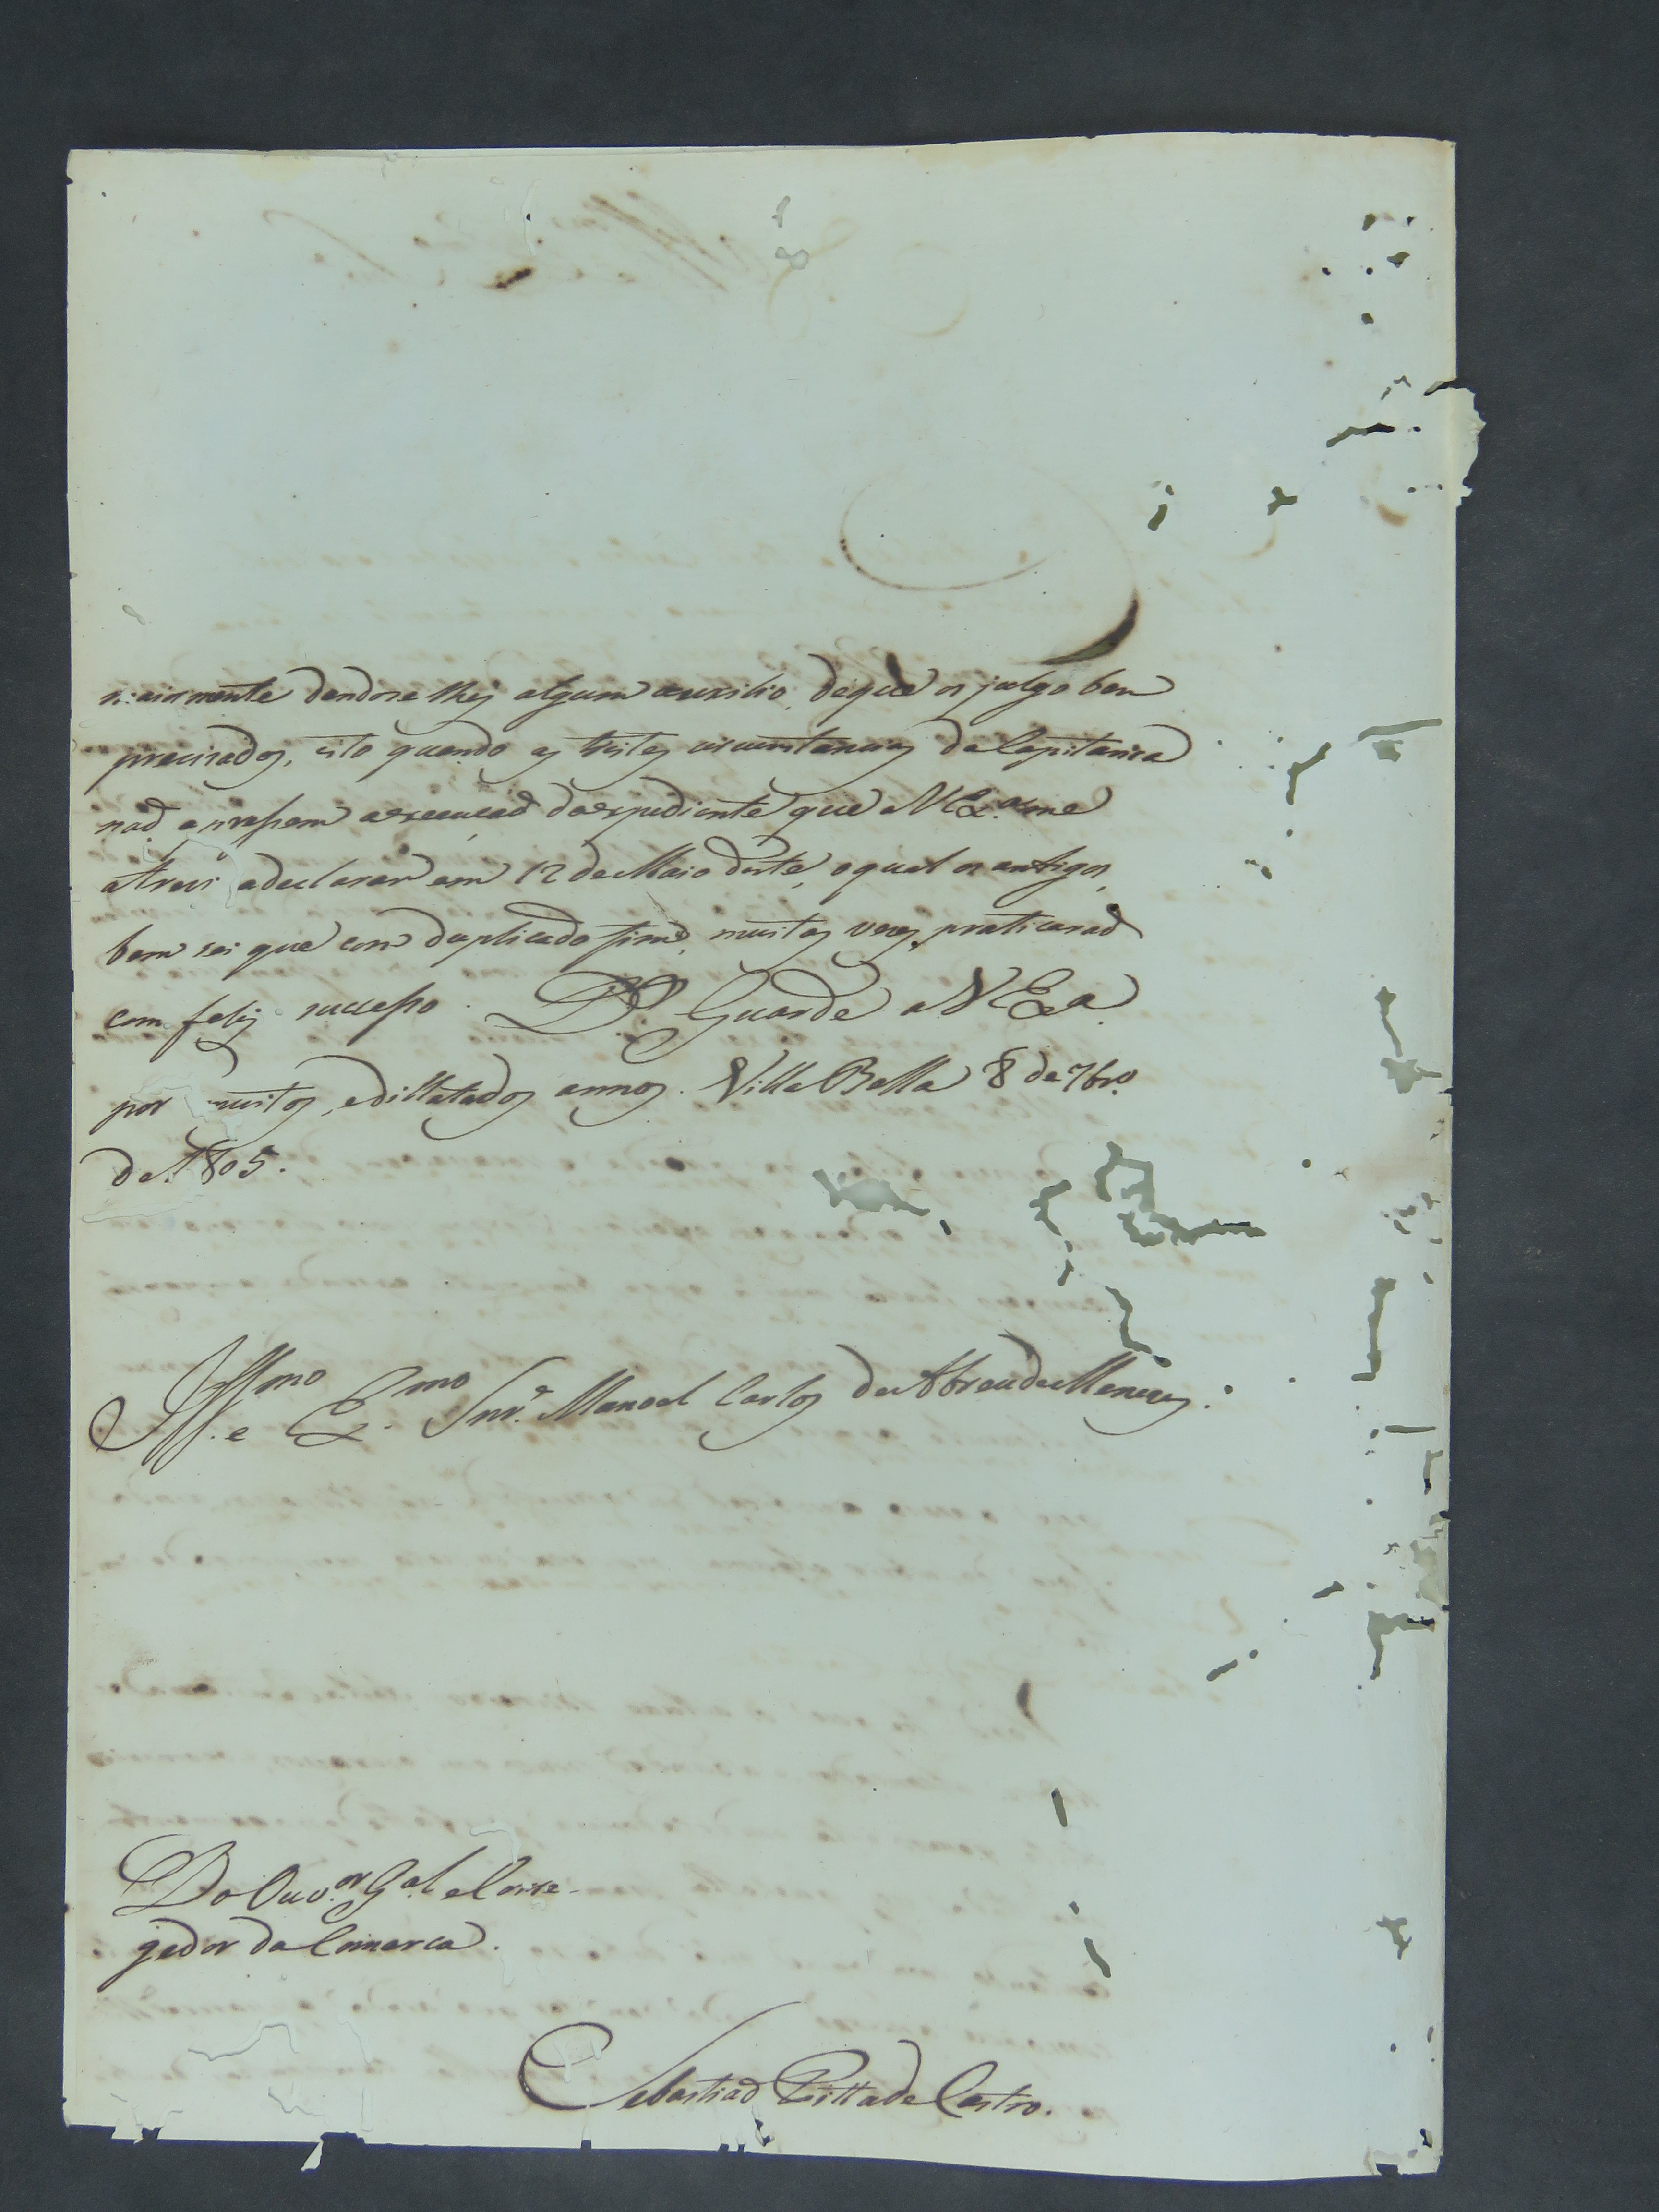 maiormente dandose lhes algum auxilio, de que os julgo bem
precisados, isto quando as tristes circunstancias da Capitania
naõ apressem a execuçaõ do expediente que a V Ex.ᵃ me
atrevi a declarar em 12 de Maio deste, o qual os antigos,
bem sei que com duplicado fim, muitas vezes praticaraõ
com feliz sucesso. D.ˢ Guarde a V Ex.ᵃ
por muitos, e dillatados annos. Villa Bella 8 de 7br.º
de 1805.
Ill.ᵐᵒ e Ex.ᵐᵒ Snr.ᵉ Manoel Carlos de Abreu de Menezes.
Do Ouv.ᵒʳ G.ᵃˡ e Corre-
gedor da Comarca.
Sebastiaõ Pitta de Castro.